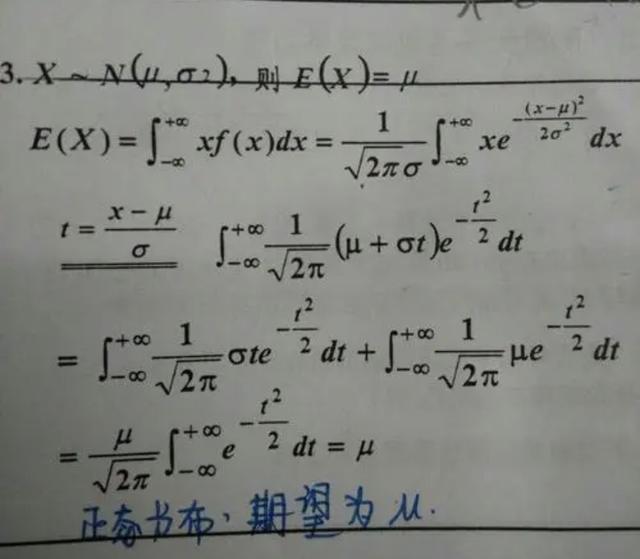 3. X ~ N(μ,σ2), 则 E(X)= μ
E(X) = ∫_{-∞}^{+∞} xf(x)dx = \frac{1}{\sqrt{2π}σ} ∫_{-∞}^{+∞} xe^{-\frac{(x-μ)^2}{2σ^2}} dx
t = \frac{x-μ}{σ} ∫_{-∞}^{+∞} \frac{1}{\sqrt{2π}} (μ + σt)e^{-\frac{t^2}{2}} dt
= ∫_{-∞}^{+∞} \frac{1}{\sqrt{2π}} σte^{-\frac{t^2}{2}} dt + ∫_{-∞}^{+∞} \frac{1}{\sqrt{2π}} μe^{-\frac{t^2}{2}} dt
= \frac{μ}{\sqrt{2π}} ∫_{-∞}^{+∞} e^{-\frac{t^2}{2}} dt = μ
正态分布、期望为 μ.